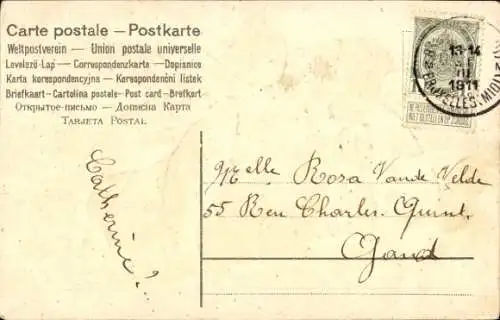 Carte postale — Postkarte
Weltpostverein — Union postale universelle
Levelező-Lap — Correspondenzkarte — Dopisnice
Karta korespondencyjna — Korespondenční lístek
Briefkaart — Cartolina postale — Post card — Brefkort
Открытое письмо — Дописна Карта
Tarjeta Postal
Catherine?
Melle Rosa Vande Velde
55 Rue Charles Quint
Gand
13-14
III
1911
BRUXELLES (MIDI)
NE PAS LIVRER
NIET BESTELLEN OP ZONDAG